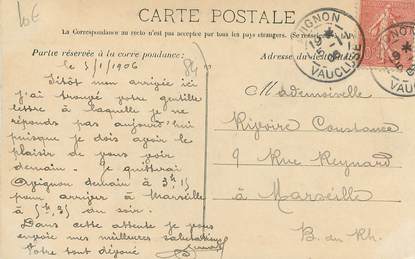 10€
CARTE POSTALE
La Correspondance au recto n'est pas acceptée par tous les pays étrangers. (Se renseigner
Partie réservée à la correspondance:
Adresse du
AVIGNON
19
VAUCLUSE
le 5/1/1906
Sitôt mon arrivée ici
j'ai trouvé votre gentille
lettre à laquelle je ne
réponds pas aujourd'hui
puisque je dois avoir le
plaisir de vous voir
demain. Je quitterai
Avignon demain à 3h 15
pour arriver à Marseille
à 5h,35 du soir.
Dans cette attente je vous
envoie mes meilleures salutations
Votre tout dévoué
Mademoiselle
Constance
9 Rue Reynard
à Marseille
B. du Rh.